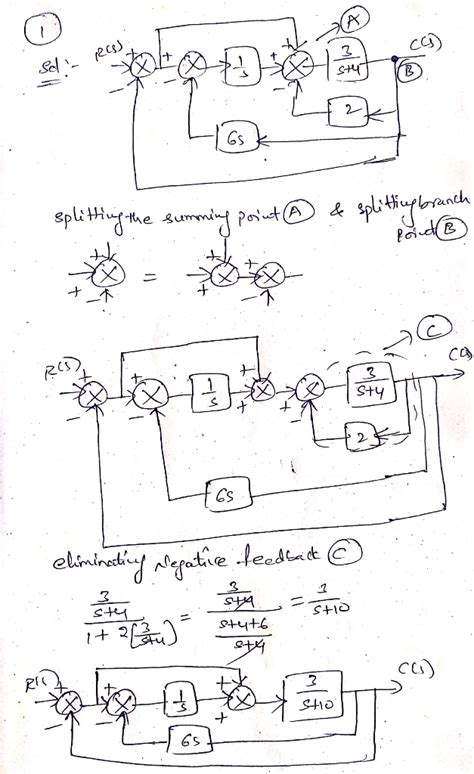 1
Sol :-
R(S) + - + - 1/s + + - A 3/s+4 C(S)
B
2
6s
splitting the summing point A & splitting branch
point B
+ + - = + + + -
C
R(S) + - + - 1/s + + + - 3/s+4 C(S)
2
6s
eliminating Negative feedback C
3/s+4 / 1+2[3/s+4] = 3/s+4 / s+4+6/s+4 = 3/s+10
R(S) + - + - 1/s + + 3/s+10 C(S)
6s